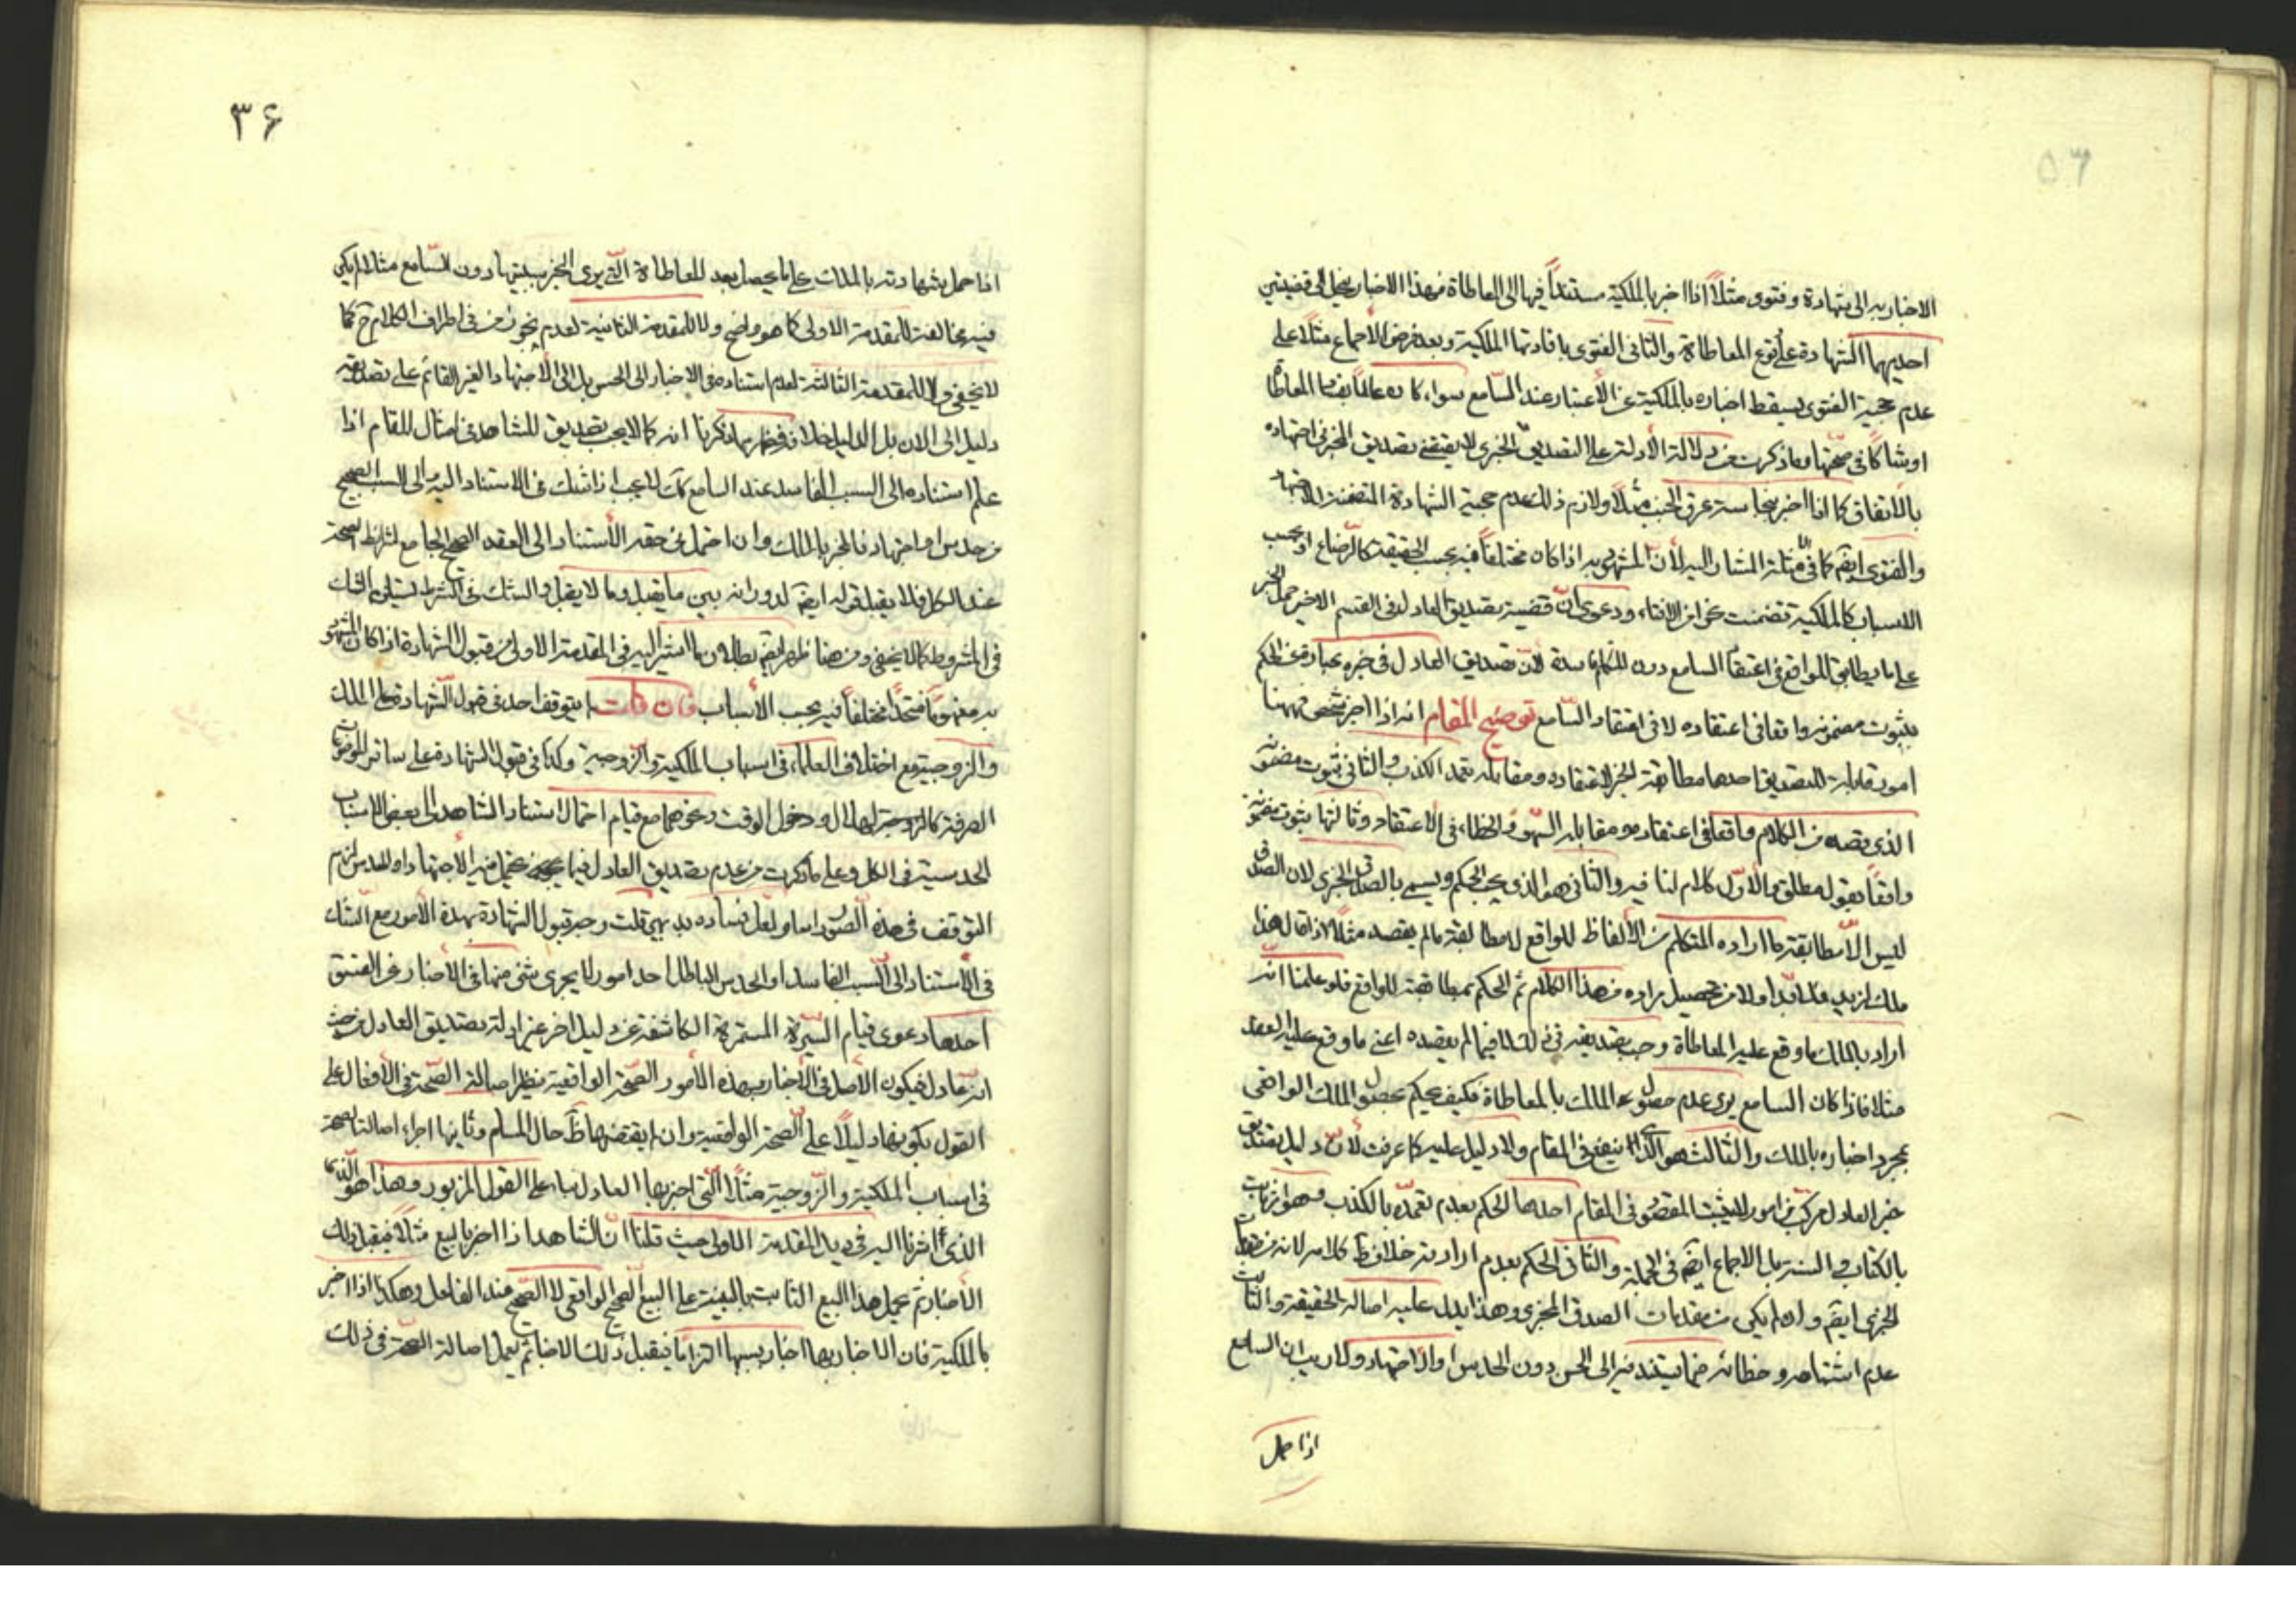 الاخبار به الى شهادة وفتوى مثلاً اذا اخبر بالملكية مستنداً فيها الى المعاطاة فهذا الاخبار ينحل الى قضيتين
احديهما الشهادة على وقوع المعاطاة والثانى الفتوى بافادتها الملكية وبعد فرض الاجماع مثلا على
عدم حجية الفتوى يسقط اخباره بالملكية عن الاعتبار عند السامع سواء كان عالماً بفساد المعاطاة
او شاكاً فى صحتها وما ذكرت من دلالة الأدلة على التصديق الخبرى لا يقتضى تصديق المخبر فى اجتهاده
بالاتفاق كما اذا اخبر بنجاسة عرق الجنب مثلاً ولازم ذلك عدم حجية الشهادة المتضمنة للاجتهاد
والفتوى ايضا كما فى الامثلة المشار اليه لأن المشهود به اذا كان مختلفاً فيه بحسب الحقيقة كالرضاع او بحسب
الاسباب كالملكية تضمنت نحوا من الافتاء ودعوى انّ قضية تصديق العادل فى القسم الاخير حمل الخبر
على ما يطابق الواقع فى اعتقاد السامع دون المتكلم فاسدة لأنّ تصديق العادل فى خبره عبارة عن الحكم
بثبوت مضمونه واقعا فى اعتقاده لا فى اعتقاد السامع توضيح المقام انه اذا اخبر شخص فههنا
امور قابلة للتصديق احدها مطابقة الخبر لاعتقاده ومقابله تعمد الكذب والثانى ثبوت مضمونه
الذى يقصده من الكلام واقعا فى اعتقاده ومقابله السهو والخطاء فى الاعتقاد وثالثها ثبوت مضمونه
واقعاً بقول مطلق والاول كلام لنا فيه والثانى هو الذى يجب الحكم ويسمى بالصدق الخبرى لان الصدق
ليس الّا مطابقة ما اراده المتكلم من الألفاظ للواقع لا مطابقة ما لم يقصد مثلا اذا قال هذا
ملك لزيد فلا بدّ اولا من تحصيل مراده من هذا الكلام ثم الحكم بمطابقته للواقع فلو علمنا انه
اراد بالملك ما وقع عليه المعاطاة وجب تصديقه فى ذلك لا فيما لم يقصده اعنى ما وقع عليه العقد
مثلا فاذا كان السامع يرى عدم حصول الملك بالمعاطاة فكيف يحكم بحصول الملك الواقعى
بمجرد اخباره بالملك والثالث هو الذى ينفع فى المقام ولا دليل عليه كما عرفت لأنّ دليل تصديق
خبر العادل مركب من امور لا يثبت المقصود فى المقام احدها الحكم بعدم تعمّده بالكذب وهو ثابت
بالكتاب والسنة بل الاجماع ايضا فى الجملة والثانى الحكم بعدم ارادته خلاف ظ كلامه لانه من مقدمات
الخبرى ايضا ولو لم يكن من مقدمات الصدق المخبرى وهذا يدل عليه اصالة الحقيقة والثالث
عدم اشتباهه وخطائه فيما يستند فيه الى الحس دون الحدس او الاجتهاد ولا ريب ان السامع
اذا حمل
٣۶
اذا حمل شهادته بالملك على ما يحصل بعد المعاطاة التى يرى المخبر سببيتها دون السامع مثلا لم يكن
فيه مخالفة للمقدمة الاولى كما هو واضح ولا للمقدمة الثانية لعدم تجوّز منه فى اطراف الكلام ح كما
لا يخفى ولا للمقدمة الثالثة لعدم استناده فى الاخبار الى الحس بل الى الاجتهاد الغير القائم على تصديقه
دليل الى الان بل الدليل خلافه فظهر بما ذكرنا انه كما لا يجب تصديق الشاهد فى امثال المقام اذا
علم استناده الى السبب الفاسد عند السامع كك لا يجب اذا شك فى الاستناد اليه والى السبب الصحيح
من حدس او اجتهاد فالمخبر بالملك وان احتمل فى حقه الأستناد الى العقد الصحيح الجامع لشرائط الصحة
عند الكل فلا يقبل قوله ايضا لدورانه بين ما يقبل وما لا يقبل والشك فى الشرط يستلزم الشك
فى المشروط كما لا يخفى ومن هنا ظهر ايضا بطلان ما اشير اليه فى المقدمة الاولى من قبول الشهادة اذا كان المشهود
به مفهوماً متحداً مختلفاً فيه بحسب الأسباب فان قلت لم يتوقف احد فى قبول الشهادة على الملك
والزوجية مع اختلاف العلماء فى اسباب الملكية والزوجية وكذا فى قبول الشهادة على سائر الموضوعات
الصرفة كالزوجية والهلال ودخول الوقت ونحوها مع قيام احتمال استناد الشاهد الى بعض الاسباب
الحدسية فى الكل وعلى ما ذكرت من عدم تصديق العادل فيما يحتمل فيه الأجتهاد او الحدس لزم
التوقف فى هذه الصور اما ولعل فساده بديهى قلت وجه قبول الشهادة بهذه الأمور مع الشك
فى الأستناد الى السبب الفاسد او الحدس الباطل احد امور لا يجرى شئ منها فى الأخبار عن الفسق
احدها دعوى قيام السيرة المستمرة الكاشفة عن دليل اخر غير ادلة تصديق العادل من حيث
انه عادل فيكون الأصل فى الأخبار بهذه الأمور الصحة الواقعية نظير اصالة الصحة فى الأفعال على
القول بكونها دليلاً على الصحة الواقعية وان لم يقتضها ظ حال المسلم وثانيها اجراء اصالة الصحة
فى اسباب الملكية والزوجية مثلا التى اخبر بها العادل بناء على القول المزبور وهذا هو
الذى اشرنا اليه فى ذيل المقدمة الاولى حيث قلنا انّ الشاهد اذا اخبر بالبيع مثلا فيقبل ذلك
الأخبار ثم يحمل هذا البيع الثابت بالبينة على البيع الصحيح الواقعى لا الصحيح عند الفاعل وهكذا اذا اخبر
بالملكية فان الاخبار بها اخبار بسببها التزاما فيقبل ذلك الاخبار ثم يعمل اصالة الصحة فى ذلك